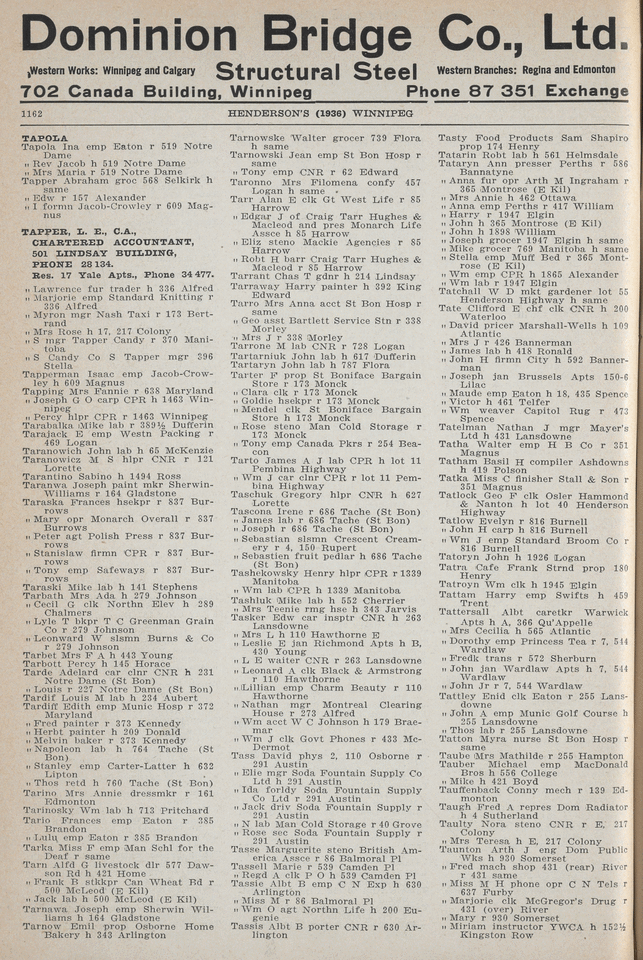 Dominion Bridge Co., Ltd.
Western Works: Winnipeg and Calgary Structural Steel Western Branches: Regina and Edmonton
702 Canada Building, Winnipeg Phone 87 351 Exchange
1162 HENDERSON'S (1936) WINNIPEG
TAPOLA
Tapola Ina emp Eaton r 519 Notre
Dame
" Rev Jacob h 519 Notre Dame
" Mrs Maria r 519 Notre Dame
Tapper Abraham groc 568 Selkirk h
same
" Edw r 157 Alexander
" I formn Jacob-Crowley r 609 Mag-
nus
TAPPER, L. E., C.A.,
CHARTERED ACCOUNTANT,
501 LINDSAY BUILDING,
PHONE 28 134.
Res. 17 Yale Apts., Phone 34 477.
" Lawrence fur trader h 336 Alfred
" Marjorie emp Standard Knitting r
336 Alfred
" Myron mgr Nash Taxi r 173 Bert-
rand
" Mrs Rose h 17, 217 Colony
" S mgr Tapper Candy r 370 Mani-
toba
" S Candy Co S Tapper mgr 396
Stella
Tapperman Isaac emp Jacob-Crow-
ley h 609 Magnus
Tapping Mrs Fannie r 638 Maryland
" Joseph G O carp CPR h 1463 Win-
nipeg
" Percy hlpr CPR r 1463 Winnipeg
Tarabalka Mike lab r 389½ Dufferin
Tarajack E emp Westn Packing r
469 Logan
Taranowich John lab h 65 McKenzie
Taranowicz M S hlpr CNR r 121
Lorette
Tarantino Sabino h 1494 Ross
Taranwa Joseph paint mkr Sherwin-
Williams r 164 Gladstone
Taraska Frances hsekpr r 837 Bur-
rows
" Mary opr Monarch Overall r 837
Burrows
" Peter agt Polish Press r 837 Bur-
rows
" Stanislaw firmn CPR r 837 Bur-
rows
" Tony emp Safeways r 837 Bur-
rows
Taraski Mike lab h 141 Stephens
Tarbath Mrs Ada h 279 Johnson
" Cecil G clk Northn Elev h 289
Chalmers
" Lyle T bkpr T C Greenman Grain
Co r 279 Johnson
" Leonward W slsmn Burns & Co
r 279 Johnson
Tarbet Mrs F A h 443 Young
Tarbott Percy h 145 Horace
Tarde Adelard car clnr CNR h 231
Notre Dame (St Bon)
" Louis r 227 Notre Dame (St Bon)
Tardif Louis M lab h 234 Aubert
Tardiff Edith emp Munic Hosp r 372
Maryland
" Fred painter r 373 Kennedy
" Herbt painter h 209 Donald
" Melvin baker r 373 Kennedy
" Napoleon lab h 764 Tache (St
Bon)
" Stanley emp Carter-Latter h 632
Lipton
" Thos retd h 760 Tache (St Bon)
Tarino Mrs Annie dressmkr r 161
Edmonton
Tarinosky Wm lab h 713 Pritchard
Tario Frances emp Eaton r 385
Brandon
" Lulu emp Eaton r 385 Brandon
Tarka Miss F emp Man Schl for the
Deaf r same
Tarn Alfd G livestock dlr 577 Daw-
son Rd h 421 Home
" Frank B stkkpr Can Wheat Bd r
500 McLeod (E Kil)
" Jack lab h 500 McLeod (E Kil)
Tarnawa Joseph emp Sherwin Wil-
liams h 164 Gladstone
Tarnow Emil prop Osborne Home
Bakery h 343 Arlington
Tarnowske Walter grocer 739 Flora
h same
Tarnowski Jean emp St Bon Hosp r
same
" Tony emp CNR r 62 Edward
Taronno Mrs Filomena confy 457
Logan h same
Tarr Alan E clk Gt West Life r 85
Harrow
" Edgar J of Craig Tarr Hughes &
Macleod and pres Monarch Life
Assce h 85 Harrow
" Eliz steno Mackie Agencies r 85
Harrow
" Robt H barr Craig Tarr Hughes &
Macleod r 85 Harrow
Tarrant Chas T gdnr h 214 Lindsay
Tarraway Harry painter h 392 King
Edward
Tarro Mrs Anna acct St Bon Hosp r
same
" Geo asst Bartlett Service Stn r 338
Morley
" Mrs J r 338 Morley
Tarrone M lab CNR r 728 Logan
Tartarniuk John lab h 617 Dufferin
Tartaryn John lab h 787 Flora
Tarter P prop St Boniface Bargain
Store r 173 Monck
" Clara clk r 173 Monck
" Goldie hsekpr r 173 Monck
" Mendel clk St Boniface Bargain
Store h 173 Monck
" Rose steno Man Cold Storage r
173 Monck
" Tony emp Canada Pkrs r 254 Bea-
con
Tarto James A J lab CPR h lot 11
Pembina Highway
" Wm J car clnr CPR r lot 11 Pem-
bina Highway
Taschuk Gregory hlpr CNR h 627
Lorette
Tascona Irene r 686 Tache (St Bon)
" James lab r 686 Tache (St Bon)
" Joseph r 686 Tache (St Bon)
" Sebastian slsmn Crescent Cream-
ery r 4, 150 Rupert
" Sebastien fuit pedlar h 686 Tache
(St Bon)
Tashekowsky Henry hlpr CPR r 1339
Manitoba
" Wm lab CPR h 1339 Manitoba
Tashluk Mike lab h 552 Cherrier
" Mrs Teenie rng hse h 343 Jarvis
Tasker Edw car insptr CNR h 263
Lansdowne
" Mrs L h 110 Hawthorne E
" Leslie E jan Richmond Apts h B,
430 Young
" L E waiter CNR r 263 Lansdowne
" Leonard A clk Black & Armstrong
r 110 Hawthorne
" Lillian emp Charm Beauty r 110
Hawthorne
" Nathan mgr Montreal Clearing
House r 273 Alfred
" Wm acct W C Johnson h 179 Brae-
mar
" Wm J clk Govt Phones r 433 Mc-
Dermot
Tass David phys 2, 110 Osborne r
291 Austin
" Elie mgr Soda Fountain Supply Co
Ltd h 291 Austin
" Ida forldy Soda Fountain Supply
Co Ltd r 291 Austin
" Jack driv Soda Fountain Supply r
291 Austin
" N lab Man Cold Storage r 40 Grove
" Rose sec Soda Fountain Supply r
291 Austin
Tasse Marguerite steno British Am-
erica Assce r 86 Balmoral Pl
Tassell Marie r 539 Camden Pl
" Regd A clk P O h 539 Camden Pl
Tassie Albt B emp C N Exp h 630
Arlington
" Miss M r 86 Balmoral Pl
" Wm O agt Northn Life h 200 Eu-
genie
Tassis Albt B porter CNR r 630 Ar-
lington
Tasty Food Products Sam Shapiro
prop 174 Henry
Tatarin Robt lab h 561 Helmsdale
Tataryn Ann presser Perths r 586
Bannatyne
" Anna fur opr Arth M Ingraham r
365 Montrose (E Kil)
" Mrs Annie h 462 Ottawa
" Anna emp Perths r 417 William
" Harry r 1947 Elgin
" John h 365 Montrose (E Kil)
" John h 1898 William
" Joseph grocer 1947 Elgin h same
" Mike grocer 769 Manitoba h same
" Stella emp Muff Bed r 365 Mont-
rose (E Kil)
" Wm emp CPR h 1865 Alexander
" Wm lab r 1947 Elgin
Tatchall W D mkt gardener lot 55
Henderson Highway h same
Tate Clifford E chf clk CNR h 200
Waterloo
" David pricer Marshall-Wells h 109
Atlantic
" Mrs J r 426 Bannerman
" James lab h 418 Ronald
" John H firmn City h 592 Banner-
man
" Joseph jan Brussels Apts 150-6
Lilac
" Maude emp Eaton h 18, 435 Spence
" Victor h 461 Telfer
" Wm weaver Capitol Rug r 473
Spence
Tatelman Nathan J mgr Mayer's
Ltd h 431 Lansdowne
Tatha Walter emp H B Co r 351
Magnus
Tatham Basil H compiler Ashdowns
h 419 Polson
Tatka Miss C finisher Stall & Son r
351 Magnus
Tatlock Geo F clk Osler Hammond
& Nanton h lot 40 Henderson
Highway
Tatlow Evelyn r 816 Burnell
" John H carp h 816 Burnell
" Wm J emp Standard Broom Co r
816 Burnell
Tatoryn John h 1926 Logan
Tatra Cafe Frank Strnd prop 180
Henry
Tatroyn Wm clk h 1945 Elgin
Tattam Harry emp Swifts h 459
Trent
Tattersall Albt caretkr Warwick
Apts h A, 366 Qu'Appelle
" Mrs Cecilia h 565 Atlantic
" Dorothy emp Princess Tea r 7, 544
Wardlaw
" Fredk trans r 572 Sherburn
" John jan Wardlaw Apts h 7, 544
Wardlaw
" John Jr r 7, 544 Wardlaw
Tattley Enid clk Eaton r 255 Lans-
downe
" John A emp Munic Golf Course h
255 Lansdowne
" Thos lab r 255 Lansdowne
Tatton Myra nurse St Bon Hosp r
same
Taube Mrs Mathilde r 255 Hampton
Tauber Michael emp MacDonald
Bros h 556 College
" Mike h 421 Boyd
Tauffenback Conny mech r 139 Ed-
monton
Taugh Fred A repres Dom Radiator
h 4 Sutherland
Taulty Nora steno CNR r E, 217
Colony
" Mrs Teresa h E, 217 Colony
Taunton Arth J eng Dom Public
Wks h 930 Somerset
" Fred mach shop 431 (rear) River
r 431 same
" Miss M H phone opr C N Tels r
637 Furby
" Marjorie clk McGregor's Drug r
431 (over) River
" Mary r 930 Somerset
" Miriam instructor YWCA h 152½
Kingston Row